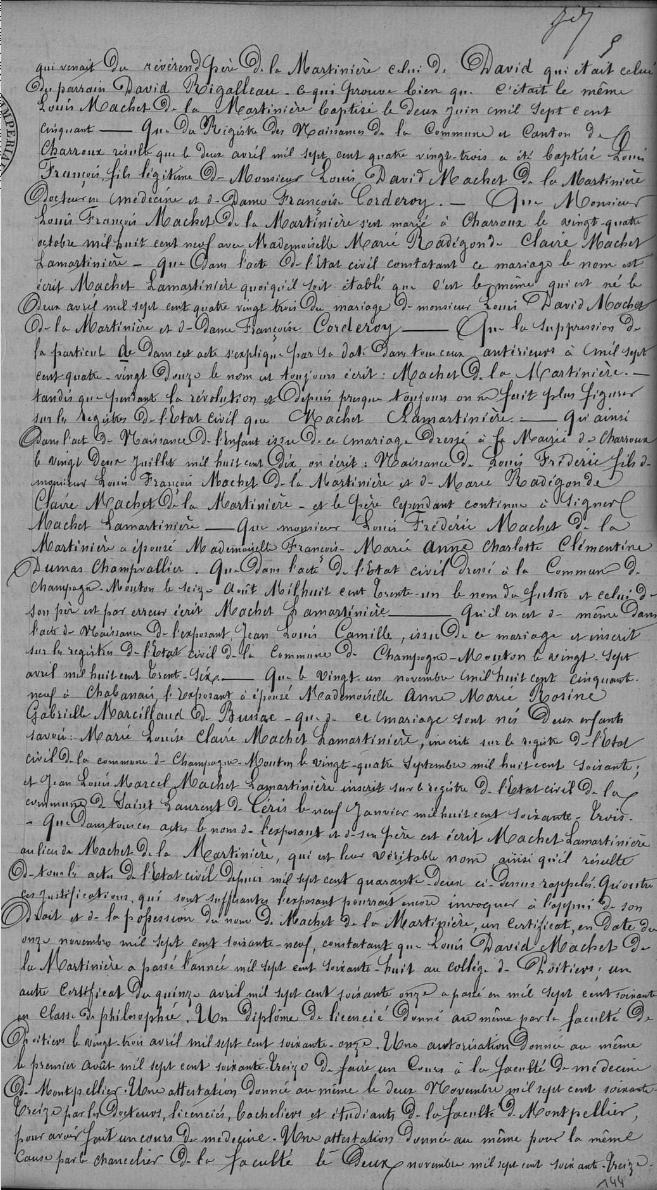 5
qui venait du révérend père de la Martinière celui de David qui était celui
du parrain David Rigalleau - ce qui prouve bien que c'était le même
Louis Machet de la Martinière baptisé le deux juin mil sept cent
cinquant — Que du Registre des Naissances de la Commune et Canton de
Charroux résulte que le deux avril mil sept cent quatre vingt-trois a été baptisé Louis
François, fils légitime de Monsieur Louis David Machet de la Martinière
Docteur en médecine et de Dame Françoise Corderoy. — Que Monsieur
Louis François Machet de la Martinière s'est marié à Charroux le vingt-quatre
octobre mil huit cent neuf avec Mademoiselle Marie Radégonde Claire Machet
Lamartinière - que dans l'acte de l'État civil constatant ce mariage le nom est
écrit Machet Lamartinière quoiqu'il soit établi que c'est le même qui est né le
deux avril mil sept cent quatre vingt trois du mariage de monsieur Louis David Machet
de la Martinière et de Dame Françoise Corderoy — Que la suppression de
la particule de dans cet acte s'explique par sa date dans tous ceux antérieurs à mil sept
cent quatre-vingt douze le nom est toujours écrit : Machet de la Martinière. —
tandis que pendant la révolution et depuis presque toujours on ne fait plus figurer
sur les registres de l'État civil que Machet Lamartinière. — Qu'ainsi
dans l'acte de Naissance de l'enfant issu de ce mariage dressé à la Mairie de Charroux
le vingt deux juillet mil huit cent dix, on écrit : Naissance de Louis Frédéric fils de
monsieur Louis François Machet de la Martinière et de Marie Radégonde
Claire Machet de la Martinière - et le père cependant continue à signer
Machet Lamartinière — Que monsieur Louis Frédéric Machet de la
Martinière a épousé Mademoiselle François-Marie Anne Charlotte Clémentine
Dumas Champvallier. Que dans l'acte de l'État civil dressé à la Commune de
Champagne-Mouton le seize Août Mil huit cent trente-un le nom du futur et celui de
son père est par erreur écrit Machet Lamartinière — Qu'il en est de même dans
l'acte de Naissance de l'exposant Jean Louis Camille, issu de ce mariage et inscrit
sur les registres de l'État civil de la Commune de Champagne-Mouton le vingt-sept
avril mil huit cent trente-six — Que le vingt un novembre mil huit cent cinquante-
neuf à Chabanais l'exposant à épousé Mademoiselle Anne Marie Rosine
Gabrielle Marcilhaud de Bussac - que de ce mariage sont nés deux enfants
savoir : Marie Louise Claire Machet Lamartinière, inscrite sur le registre de l'État
civil de la commune de Champagne-Mouton le vingt-quatre septembre mil huit cent soixante ;
et Jean Louis Marcel Machet Lamartinière inscrit sur le registre de l'État civil de la
commune de Saint Laurent de Céris le neuf Janvier mil huit cent soixante-trois.
- Que dans tous ces actes le nom de l'exposant et de son père est écrit Machet-Lamartinière
au lieu de Machet de la Martinière, qui est leur véritable nom, ainsi qu'il résulte
de tous les actes de l'État civil depuis mil sept cent quarante-deux ci-dessus rappelés. Qu'outre
ces justifications, qui sont suffisantes l'exposant pourrait encore invoquer à l'appui de son
Droit et de la possession du nom de Machet de la Martinière, un certificat, en date du
onze novembre mil sept cent soixante-neuf, constatant que Louis David Machet de
la Martinière a passé l'année mil sept cent soixante-huit au collège de Poitiers ; un
autre certificat du quinze avril mil sept cent soixante onze a passé en mil sept cent soixante
en Classe de philosophie. Un diplôme de licencié donné au même par la faculté de
Poitiers le vingt-trois avril mil sept cent soixante-onze. Une autorisation donnée au même
le premier août mil sept cent soixante-treize de faire un Cours à la faculté de médecine
de Montpellier. Une attestation donnée au même le deux Novembre mil sept cent soixante
treize par les Docteurs, licenciés, bacheliers et étudiants de la faculté de Montpellier,
pour avoir fait un cours de médecine. Une attestation donnée au même pour la même
cause par le chancelier de la faculté le deux novembre mil sept cent soixante-treize.
144